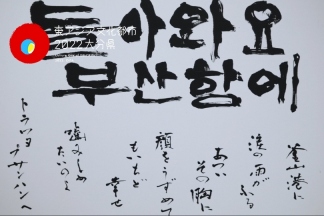 東アジア文化都市
2022大分県
돌아와요
부산항에
釜山港に
涙の雨がふる
あつい
その胸に
顔をうずめて
もいちど
幸せ
噛みしめ
たいのよ
トラワヨ
プサンハンへ